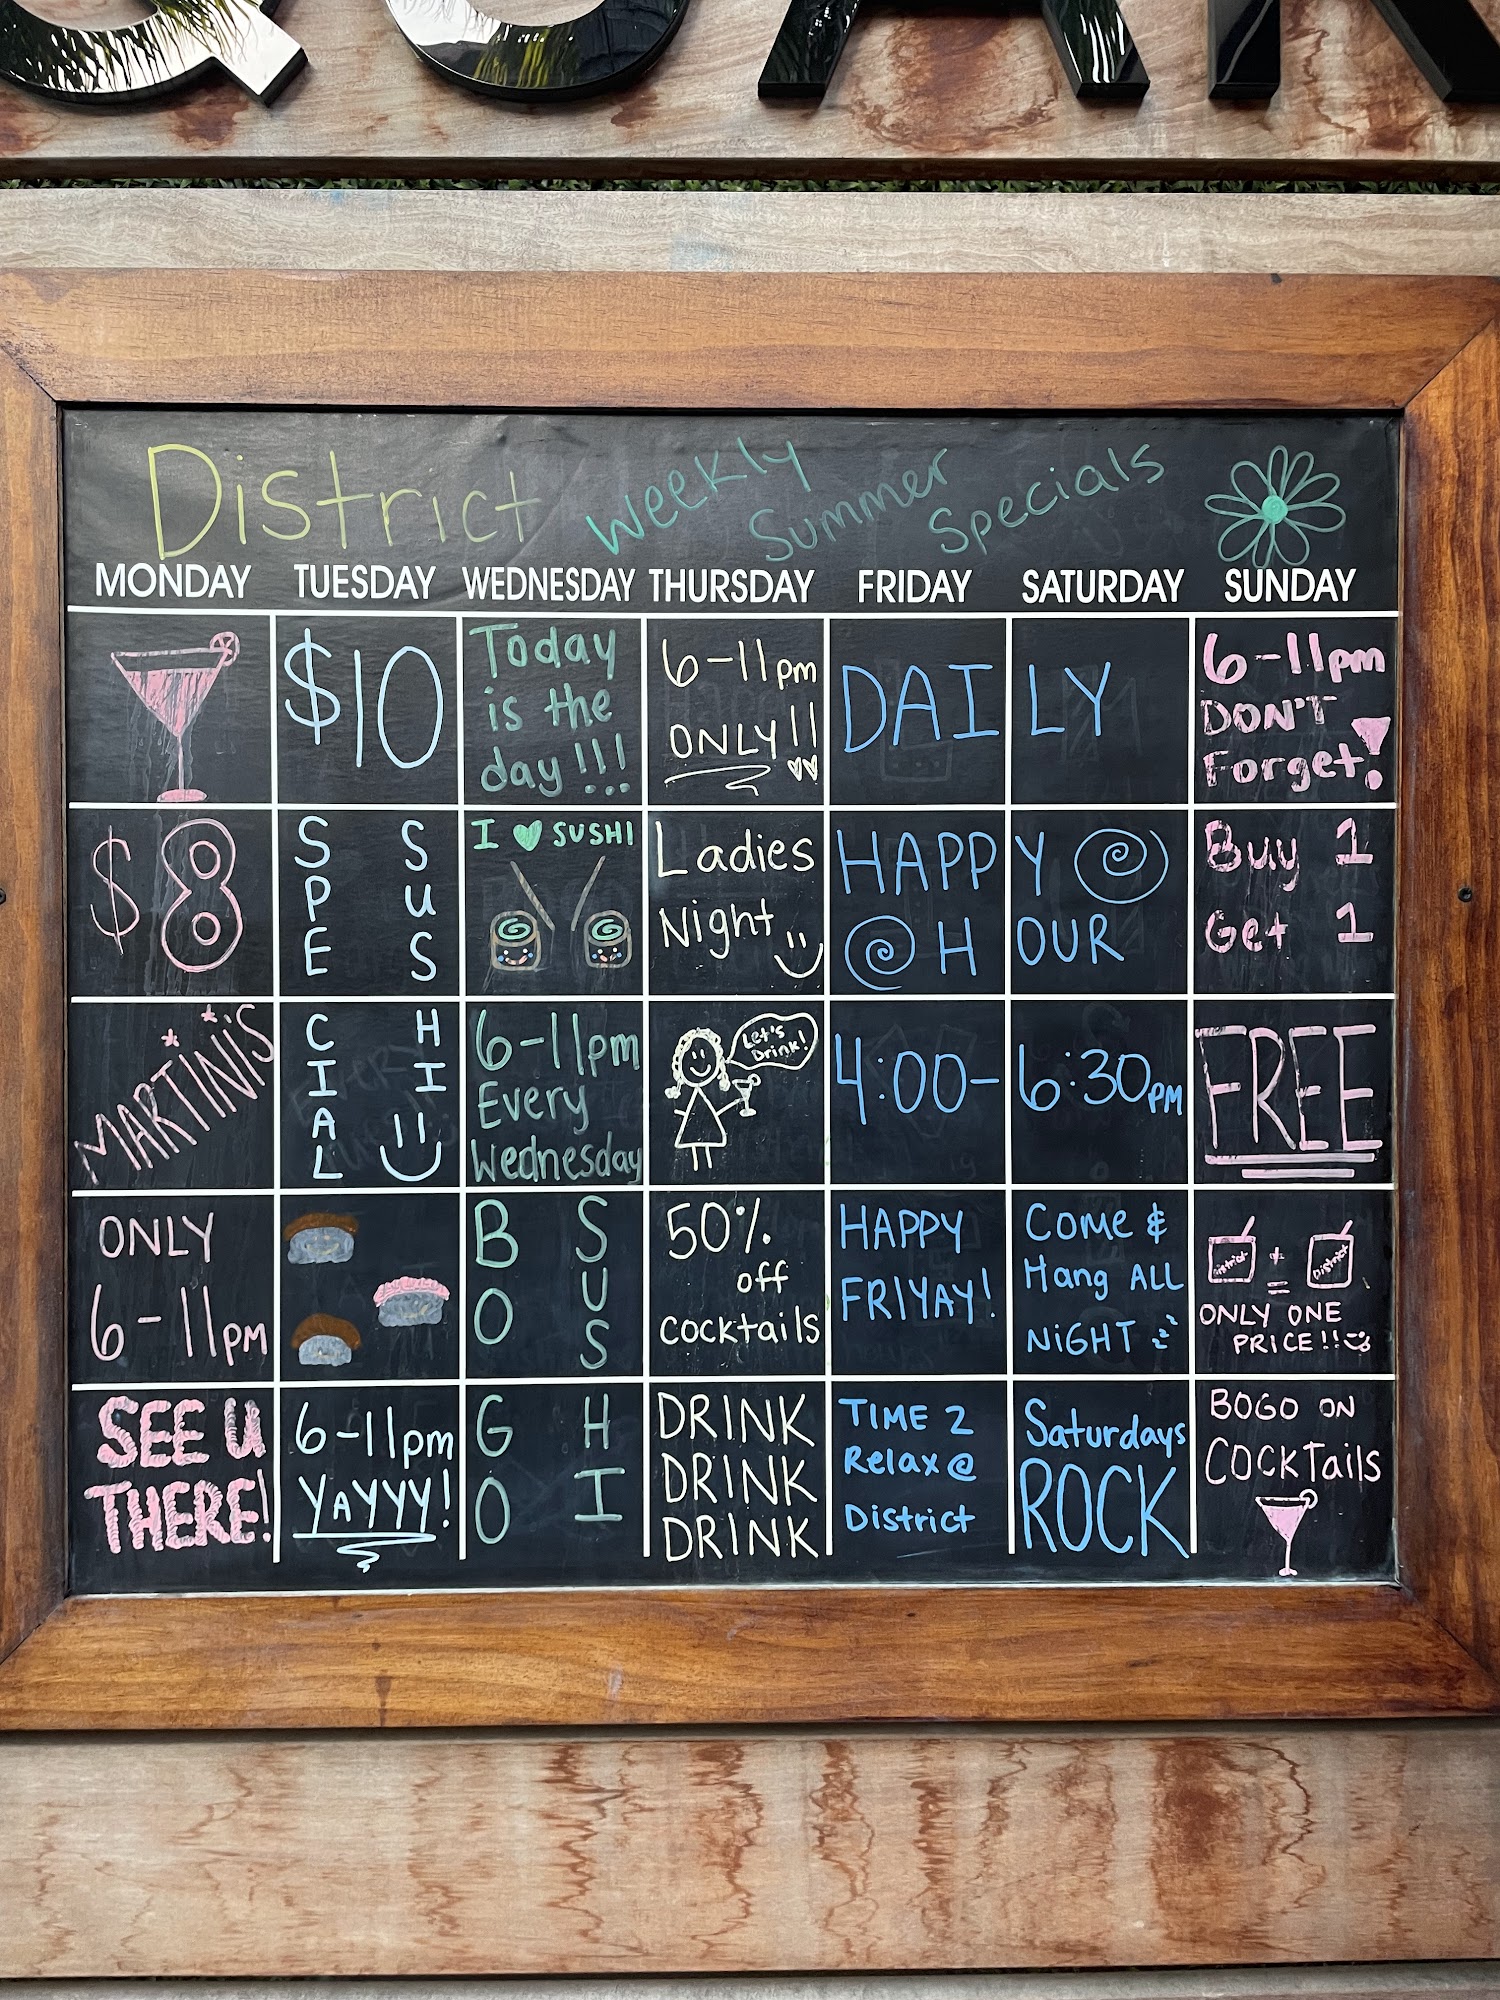 District Weekly Summer Specials
MONDAY TUESDAY WEDNESDAY THURSDAY FRIDAY SATURDAY SUNDAY
$8
MARTINIS
ONLY
6-11pm
SEE U
THERE!
$10
SPECIAL
SUSHI
6-11pm
YAYYYY!
Today
is the
day!!!
I ♥ SUSHI
6-11pm
Every
Wednesday
BOGO
SUSHI
6-11pm
ONLY!!
Ladies
Night
Let's
Drink!
50%
off
cocktails
DRINK
DRINK
DRINK
DAILY
HAPPY
HOUR
4:00-6:30PM
HAPPY
FRIYAY!
TIME 2
Relax @
District
COME &
Hang ALL
NiGHT zzz
Saturdays
ROCK
6-11pm
DON'T
Forget!
Buy 1
Get 1
FREE
District + District
=
ONLY ONE
PRICE!!
BOGO ON
COCKTails